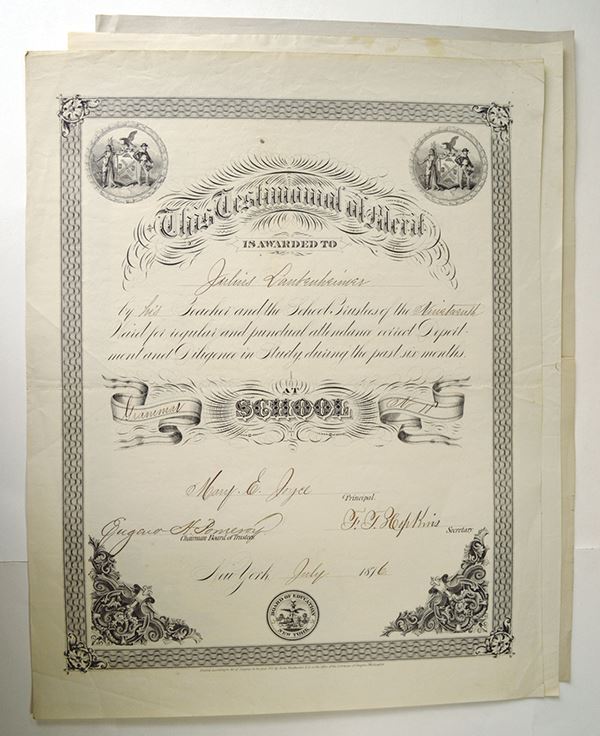 This Testimonial of Merit
IS AWARDED TO
Julius Lautenheimer
by his Teacher and the School Trustees of the Nineteenth
Ward for regular and punctual attendance correct Deport-
ment and Diligence in Study, during the past six months.
AT
Grammar SCHOOL, No.
Mary E. Joyce Principal.
Eugene H. Pomeroy F. T. Hopkins Secretary
Chairman Board of Trustees
New York July 1876
BOARD OF EDUCATION
NEW YORK